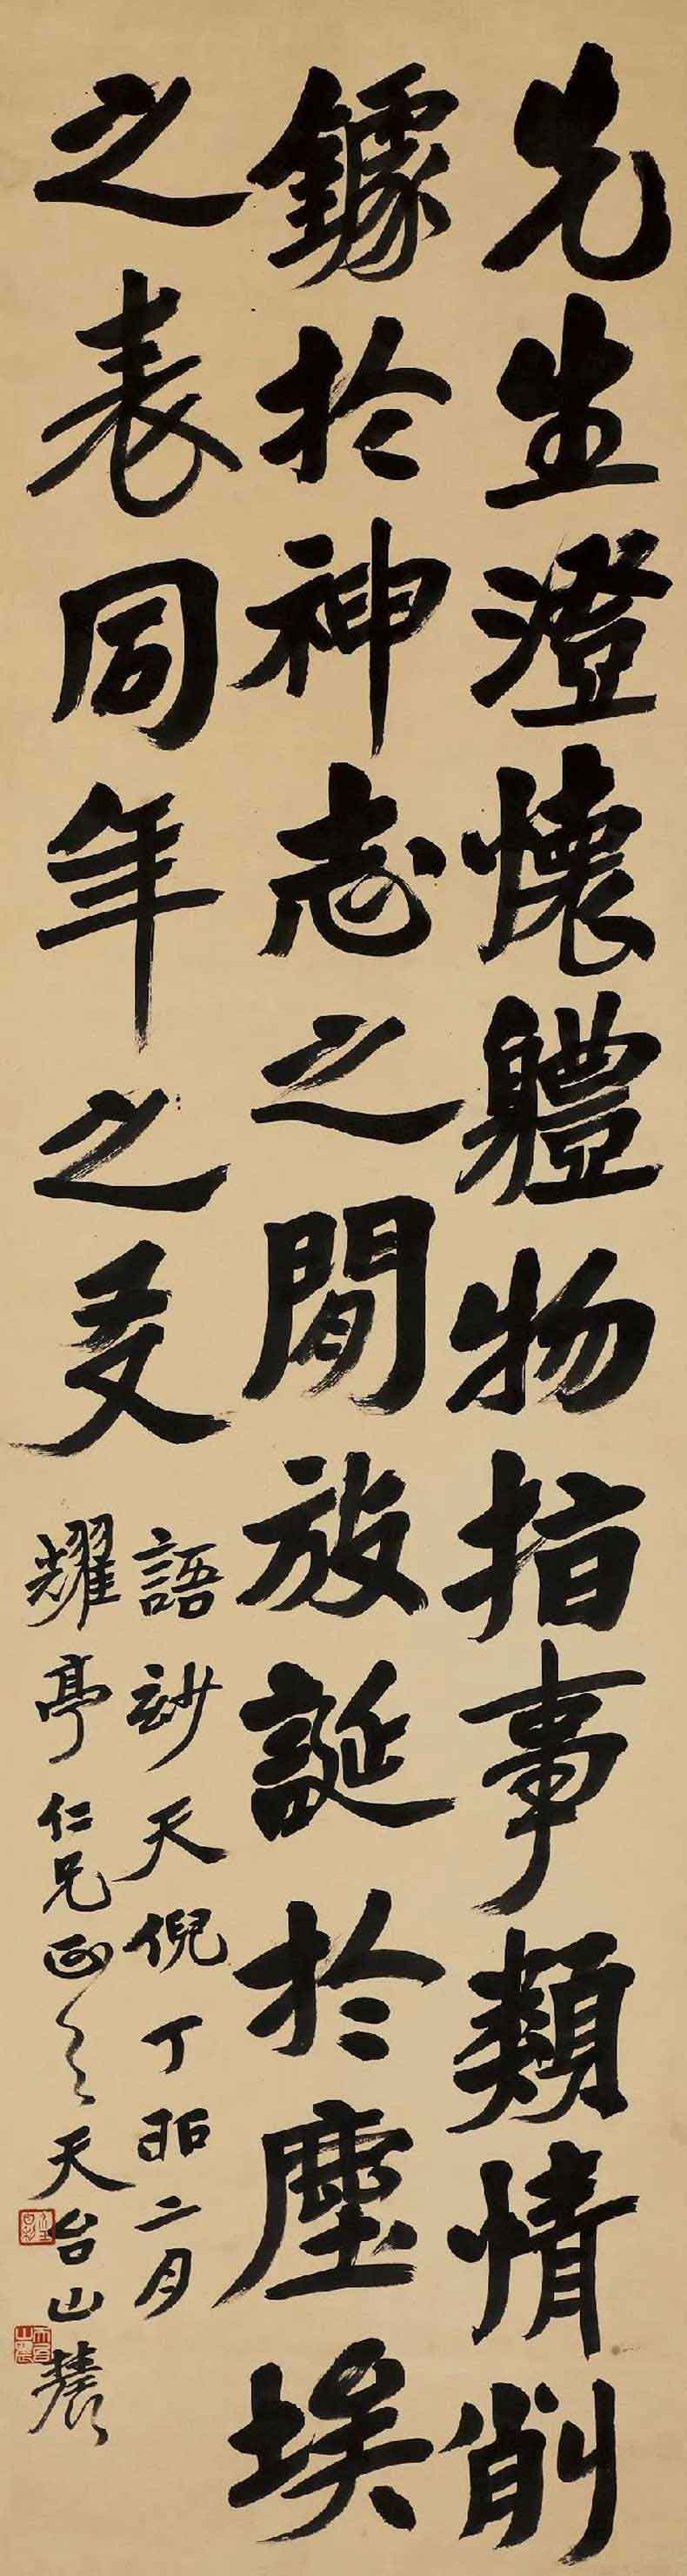 先生澄懷軆物指事類情削
鐻於神志之間放誕於塵埃
之表同年之友
語妙天倪丁卯二月
耀亭仁兄正之天台山農